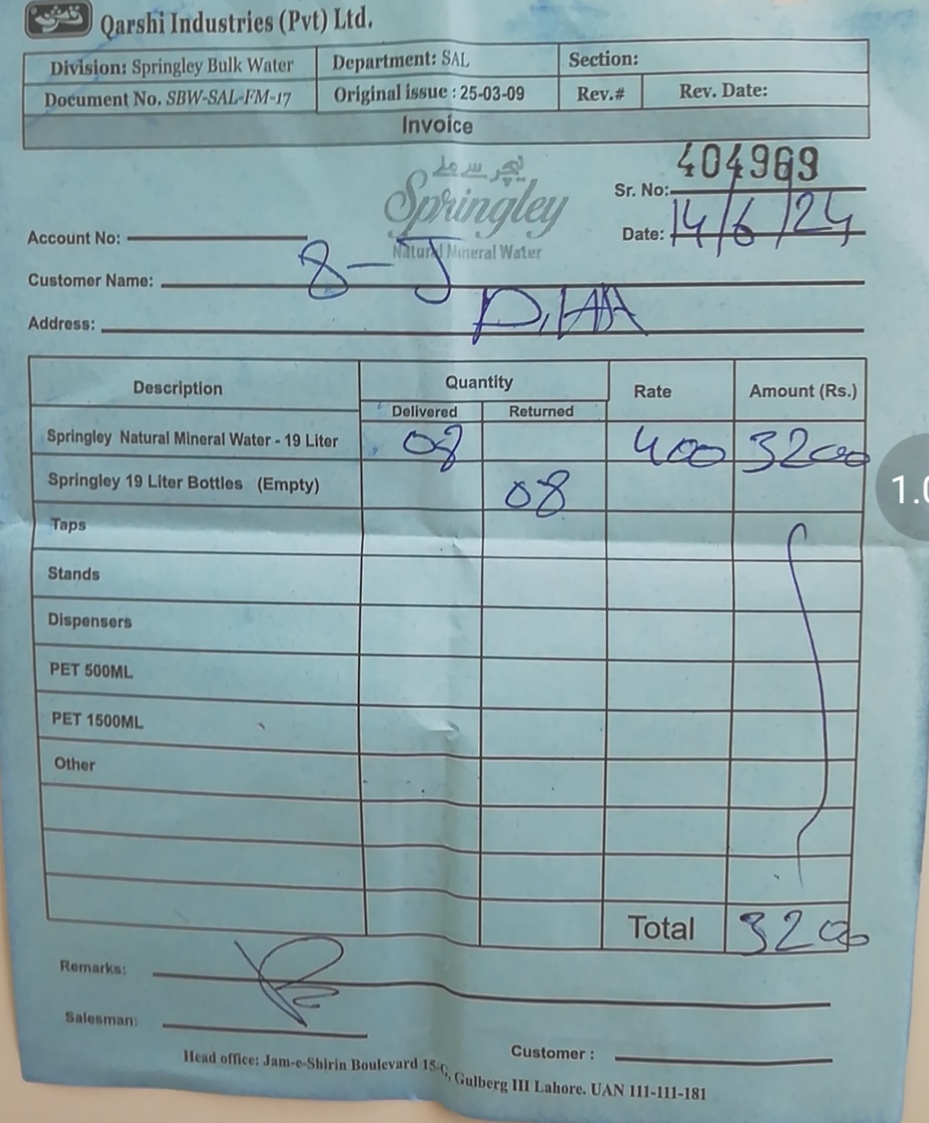 قرشی
Qarshi Industries (Pvt) Ltd.
Division: Springley Bulk Water Department: SAL Section:
Document No. SBW-SAL-FM-17 Original issue : 25-03-09 Rev.# Rev. Date:
Invoice
نیچر سے ملے
Springley
Natural Mineral Water
404969
Sr. No:
Date: 14/6/24
Account No:
Customer Name: 8-J
Address:
Description Quantity Rate Amount (Rs.)
Delivered Returned
Springley Natural Mineral Water - 19 Liter 08 400 3200
Springley 19 Liter Bottles (Empty) 08
Taps
Stands
Dispensers
PET 500ML
PET 1500ML
Other
Total 3200
Remarks:
Salesman:
Customer :
Head office: Jam-e-Shirin Boulevard 15-C, Gulberg III Lahore. UAN 111-111-181